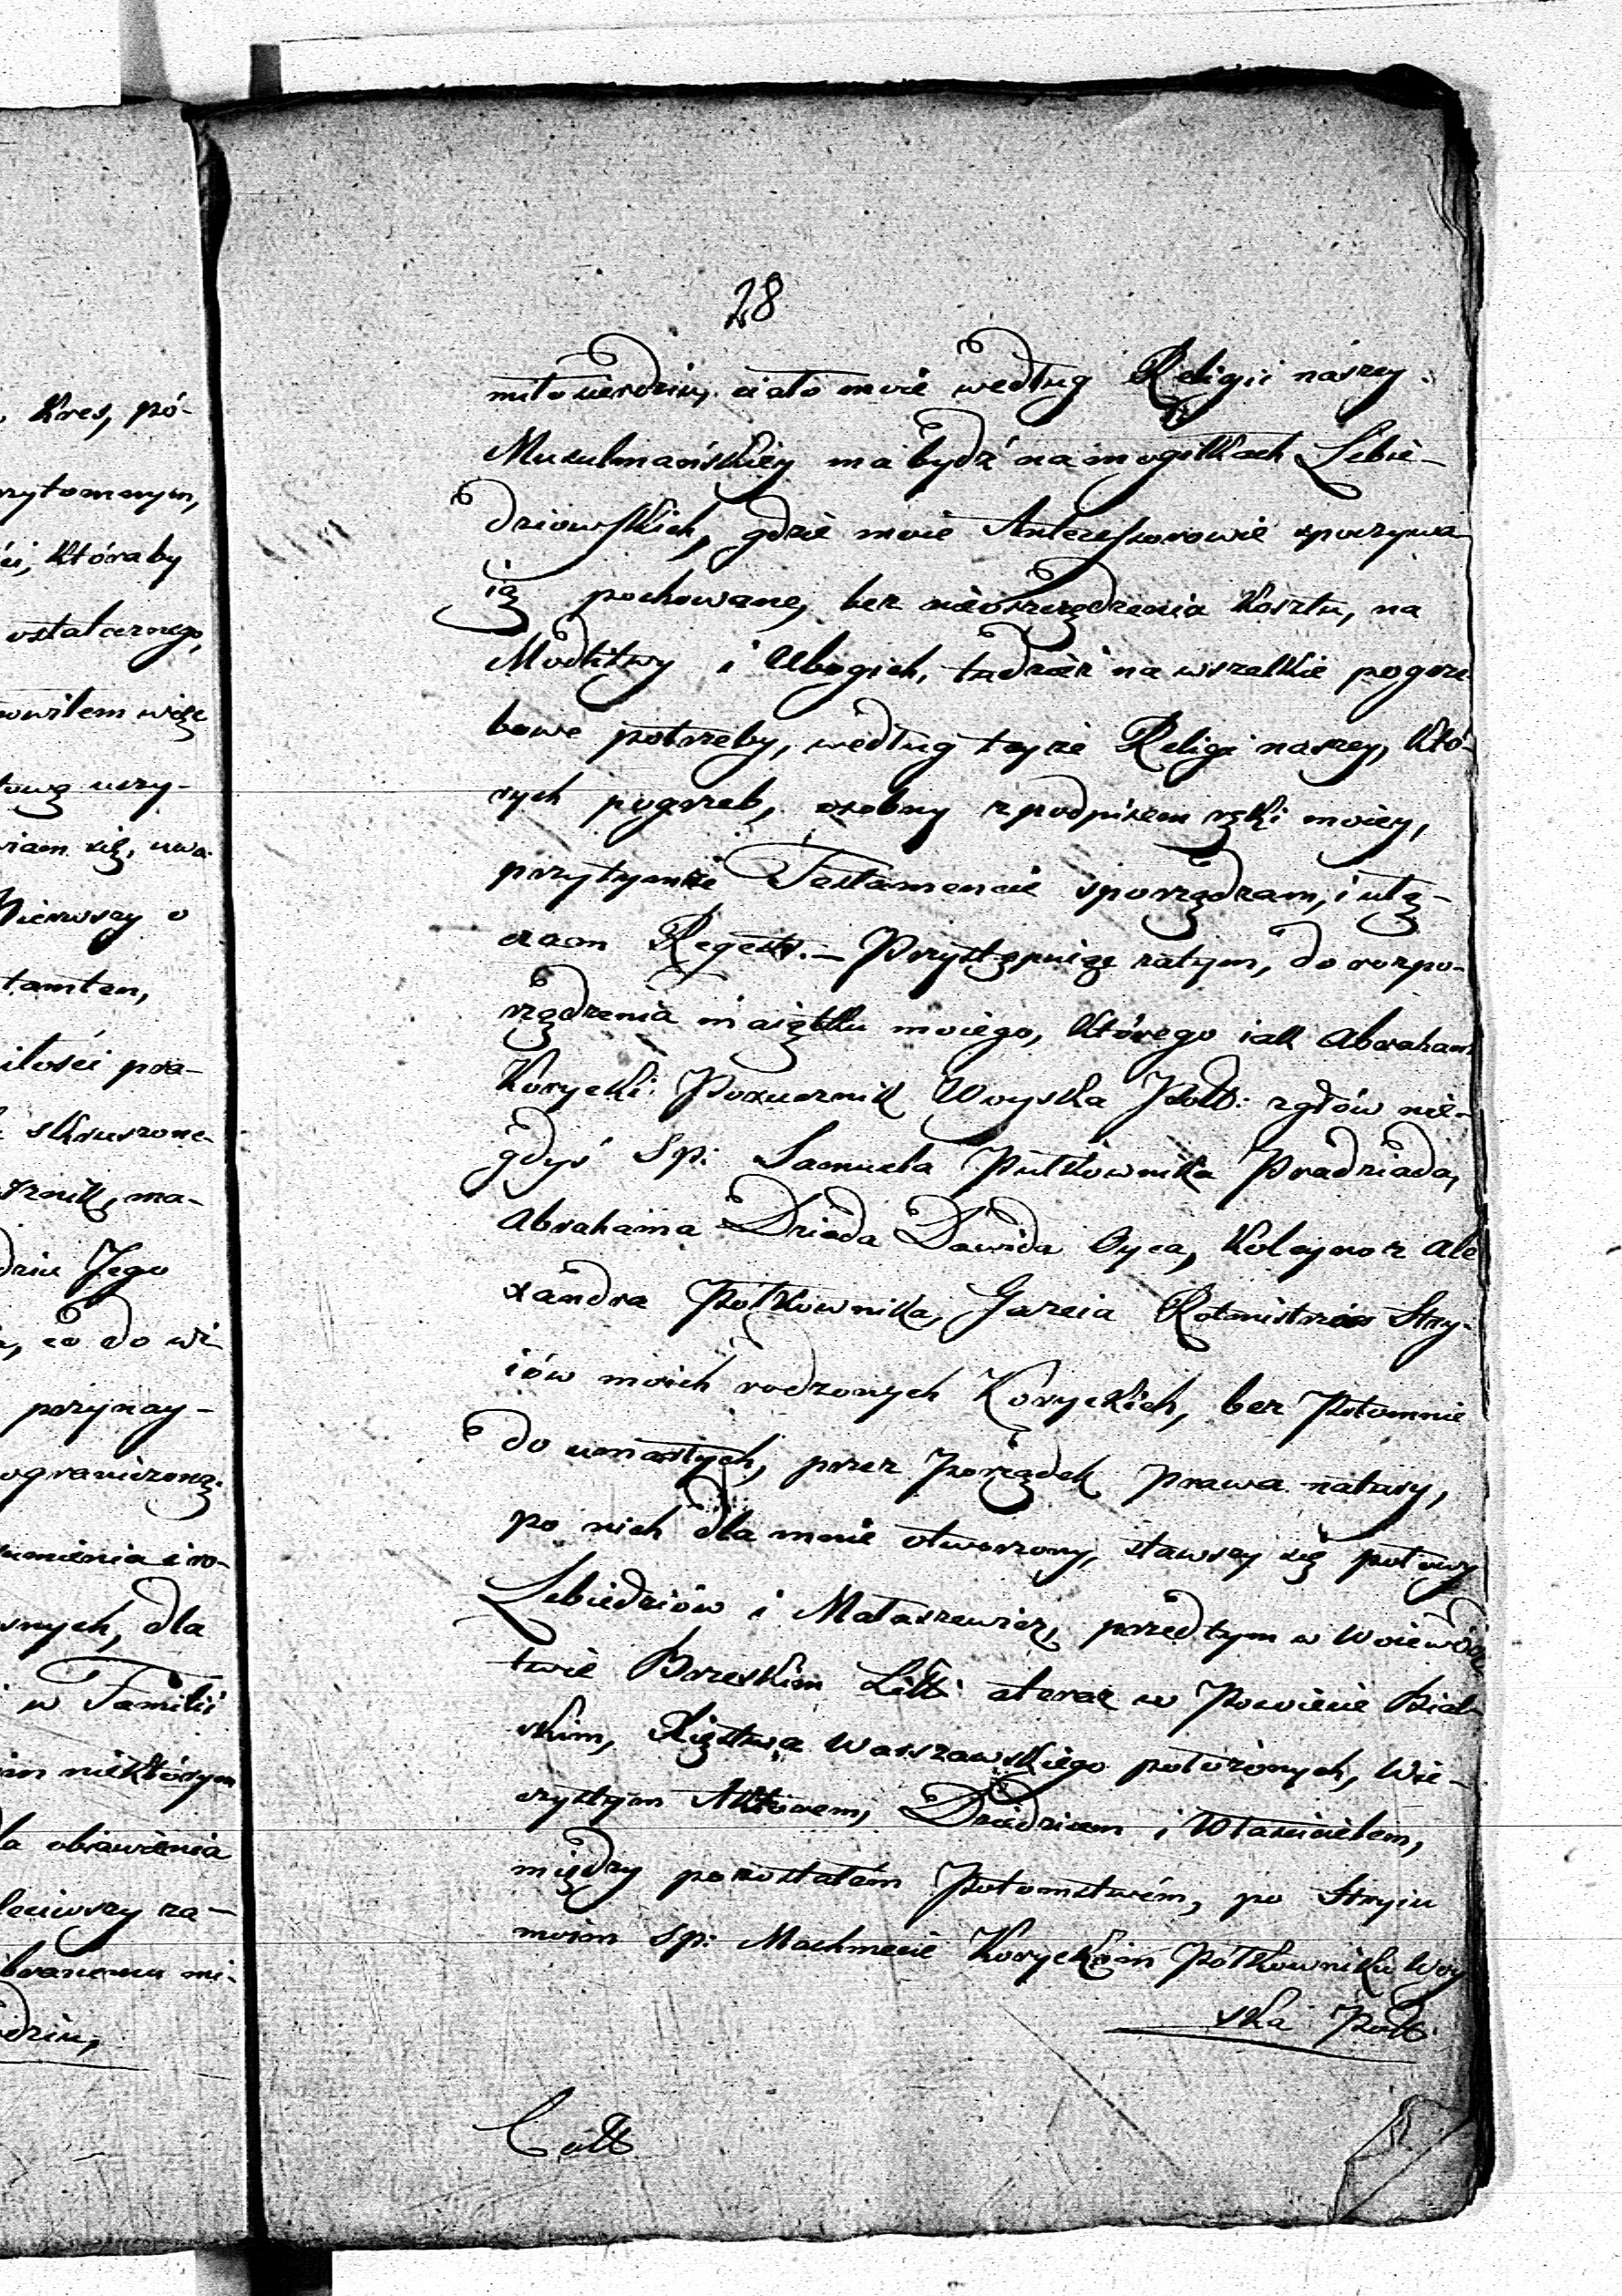 28
miłosierdziu, ciało moie według Religii naszey
Muzulmańskiey ma bydź na mogiłkach Lebie-
dziowskich, gdzie moie Antecessorowie spoczywa
ią pochowane, bez nieoszczędzenia kosztu, na
Modlitwy i Ubogich, tudzież na wszelkie pogrze
bowe potrzeby, według teyże Religi naszey, któ-
rych pogrzeb, osobny z podpisem ręki moiey,
przytymże Testamencie sporządzam, i  
 Regestr. – Przystępuię zatym, do rozpo-
rządzenia maiątku moiego, którego iak Abraham
Korycki Porucznik Woyska Polł: zgłów nie-
gdyś Sp: Samuela Pułkownika Pradziada,
Abrahama Dziada Dawida Oyca, koleyno z Ale
xandra Półkownika, Jozeia Rotmistrzów Stry-
iów moich rodzonych Koryckich, bez Potomnie
do umarłych, przez Porządek Prawa natury,
po nich dla mnie otworzony, stawszy się połowy
Lebiedziów i Małaszewicz, przedtym w Woiewódz
twie Brzeskim Litt: ateraz w Powiecie Bial
skim, Xięstwa Warszawskiego położonych, Wie-
czystym Aktorem, Dziedzicem i Właścicielem,
między pozostałém Potomstwém, po Stryiu
moim Sp: Machmecie Koryckim Półkowniku Woy
ska Polł:
, kres, pó-
rytomnym,
ci, któraby
ostatecznego,
owiłem więc
tową uczy-
wiam się, uwa-
Pierwszy o
tamten,
iłości pra-
skruszone-
, ma-
dziu Jego
, co do wi
przynay-
ograniczoną.
umienia i ro-
snych, dla
w Familii
im niektórym
la obiawienia
 za-
branemu mi-
rdziu,